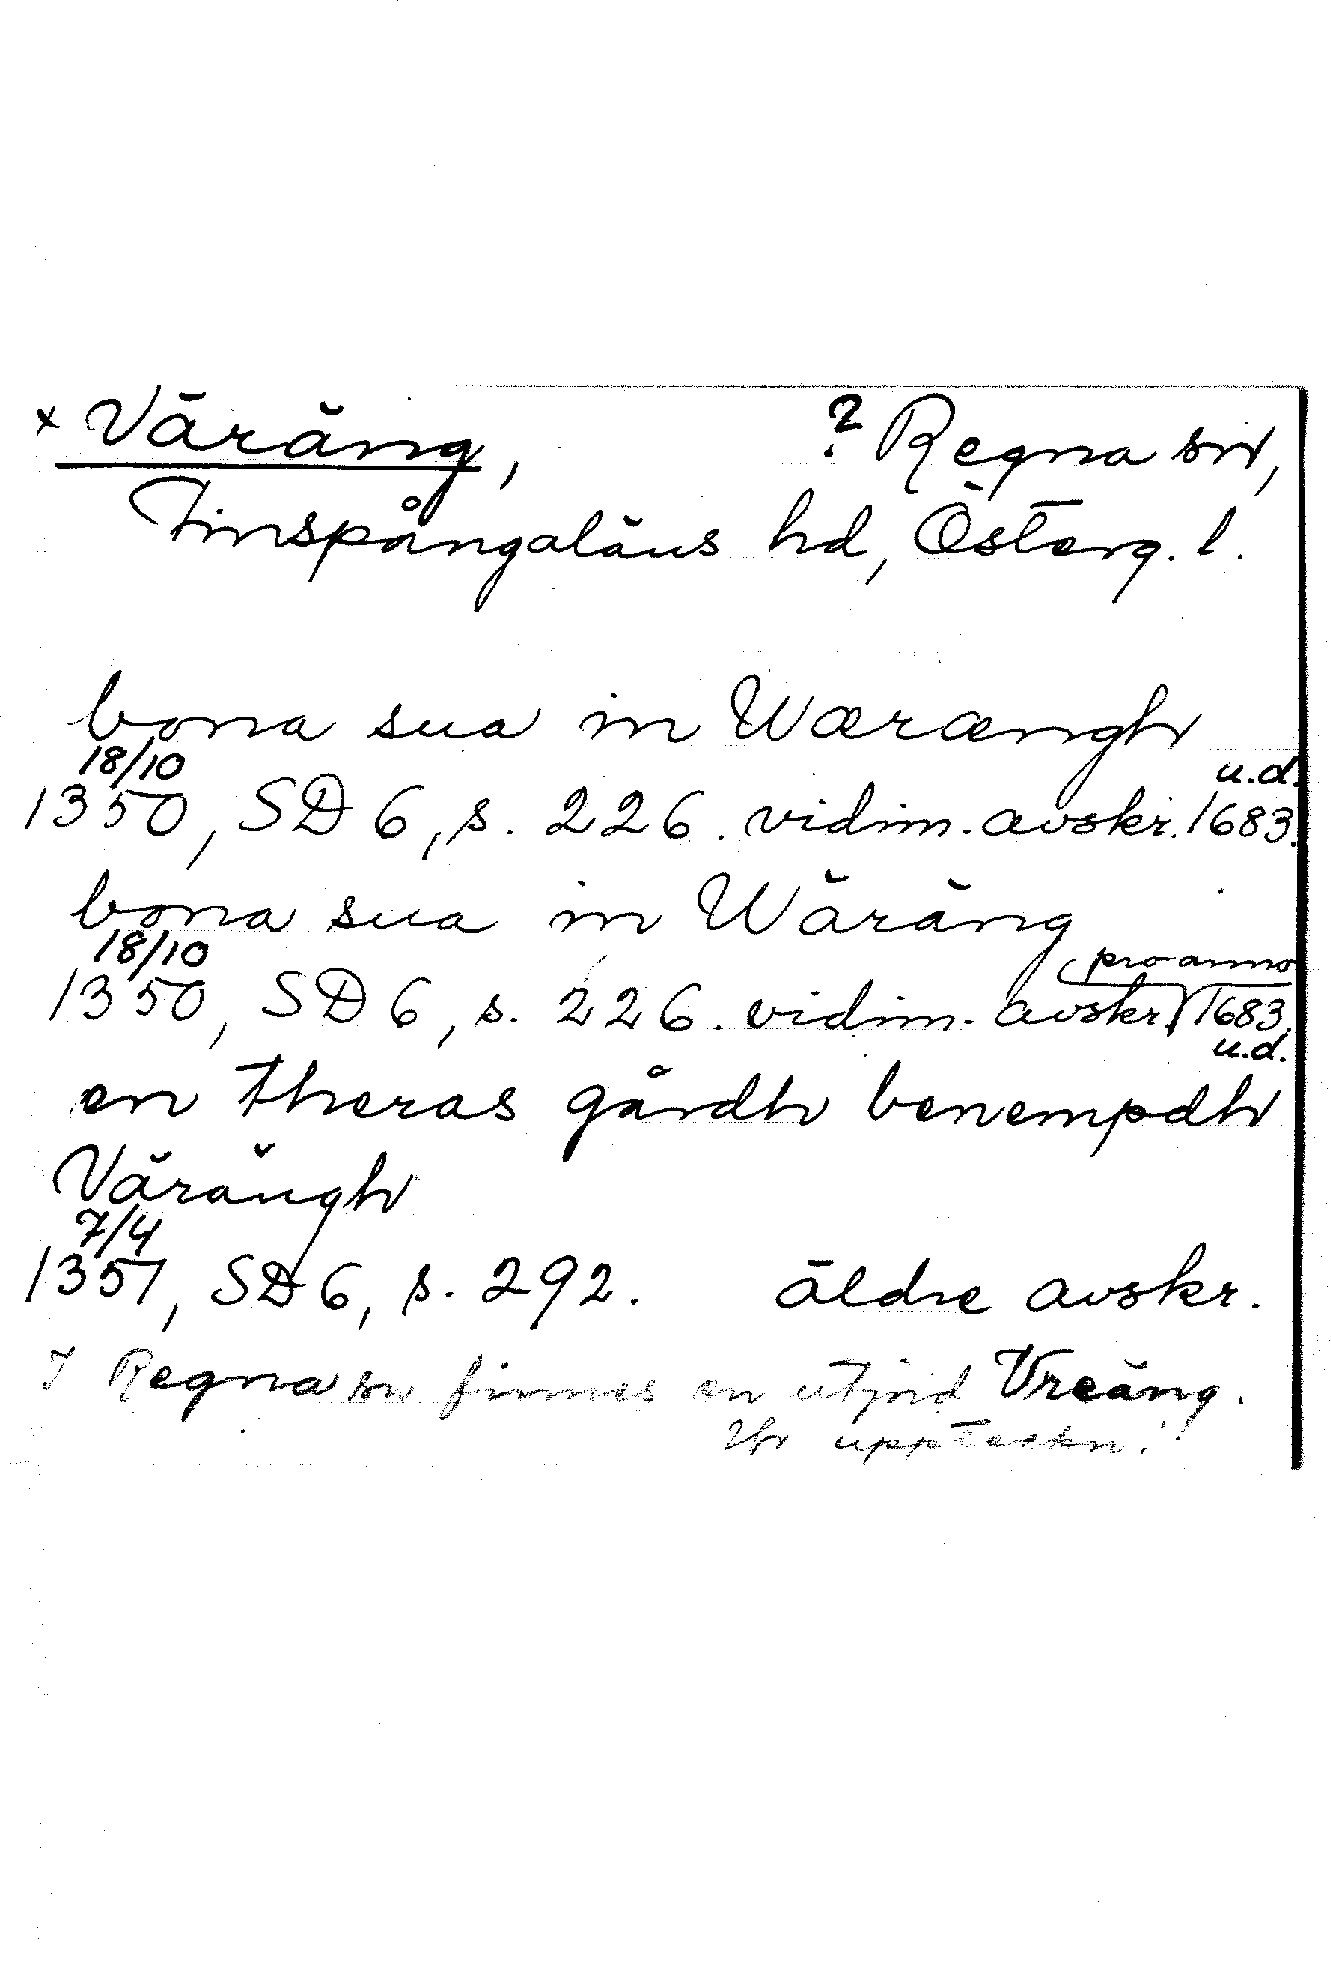 x Väräng, ? Regna sn,
Finspångaläns hd, Österg. l.
bona sua in Wærængh
18/10 u.d.
1350, SD 6, s. 226. vidim. avskr. 1683.
bona sua in Wäräng
18/10 pro anno
1350, SD 6, s. 226. vidim. avskr. 1683.
u.d.
en theras gårdh benempdh
Värängh
7/4
1351, SD 6, s. 292. äldre avskr.
I Regna sn finnes en utjord Vreäng.
uppteckn.!